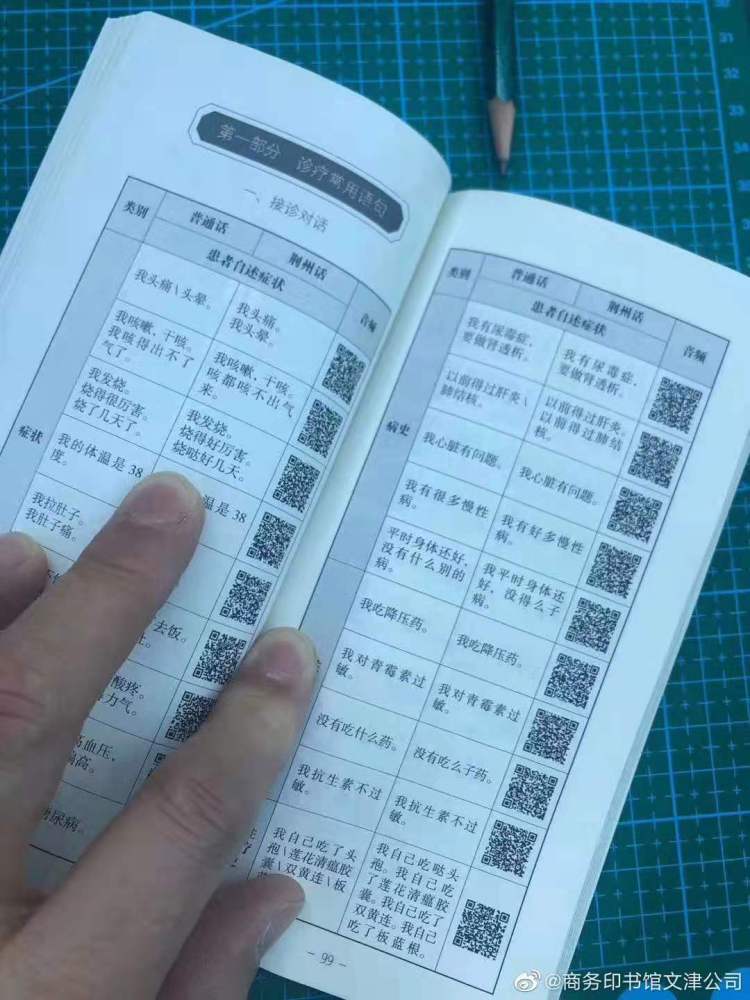 第一部分 诊疗常用语句
一、接诊对话
类别 普通话 荆州话 音频
患者自述症状
症状
我头痛\头晕。
我头痛。
我头晕。
我咳嗽，干咳。
我咳得出不了
气了。
我咳嗽，干咳。
咳都咳不出气
来。
我发烧。
烧得很厉害。
烧了几天了。
我发烧。
烧得好厉害。
烧哒好几天。
我的体温是 38
度。
温是 38
我拉肚子。
我肚子痛。
去饭。
酸疼。
力气。
高血压，
偏高。
糖尿病。
类别 普通话 荆州话 音频
患者自述症状
病史
我有尿毒症，
要做肾透析。
我有尿毒症，
要做肾透析。
以前得过肝炎\
肺结核。
以前得过肝炎。
以前得过肺结
核。
我心脏有问题。
我心脏有问题。
我有很多慢性
病。
我有好多慢性
病。
平时身体还好，
没有什么别的
病。
我平时身体还
好，没得么子
病。
我吃降压药。
我吃降压药。
我对青霉素过
敏。
我对青霉素过
敏。
没有吃什么药。
没有吃么子药。
我抗生素不过
敏。
我抗生素不过
敏。
我自己吃了头
孢\莲花清瘟胶
囊\双黄连\板
我自己吃哒头
孢。我自己吃
了莲花清瘟胶
囊。我自己吃了
双黄连。我自己
吃了板蓝根。
- 99 -
@商务印书馆文津公司